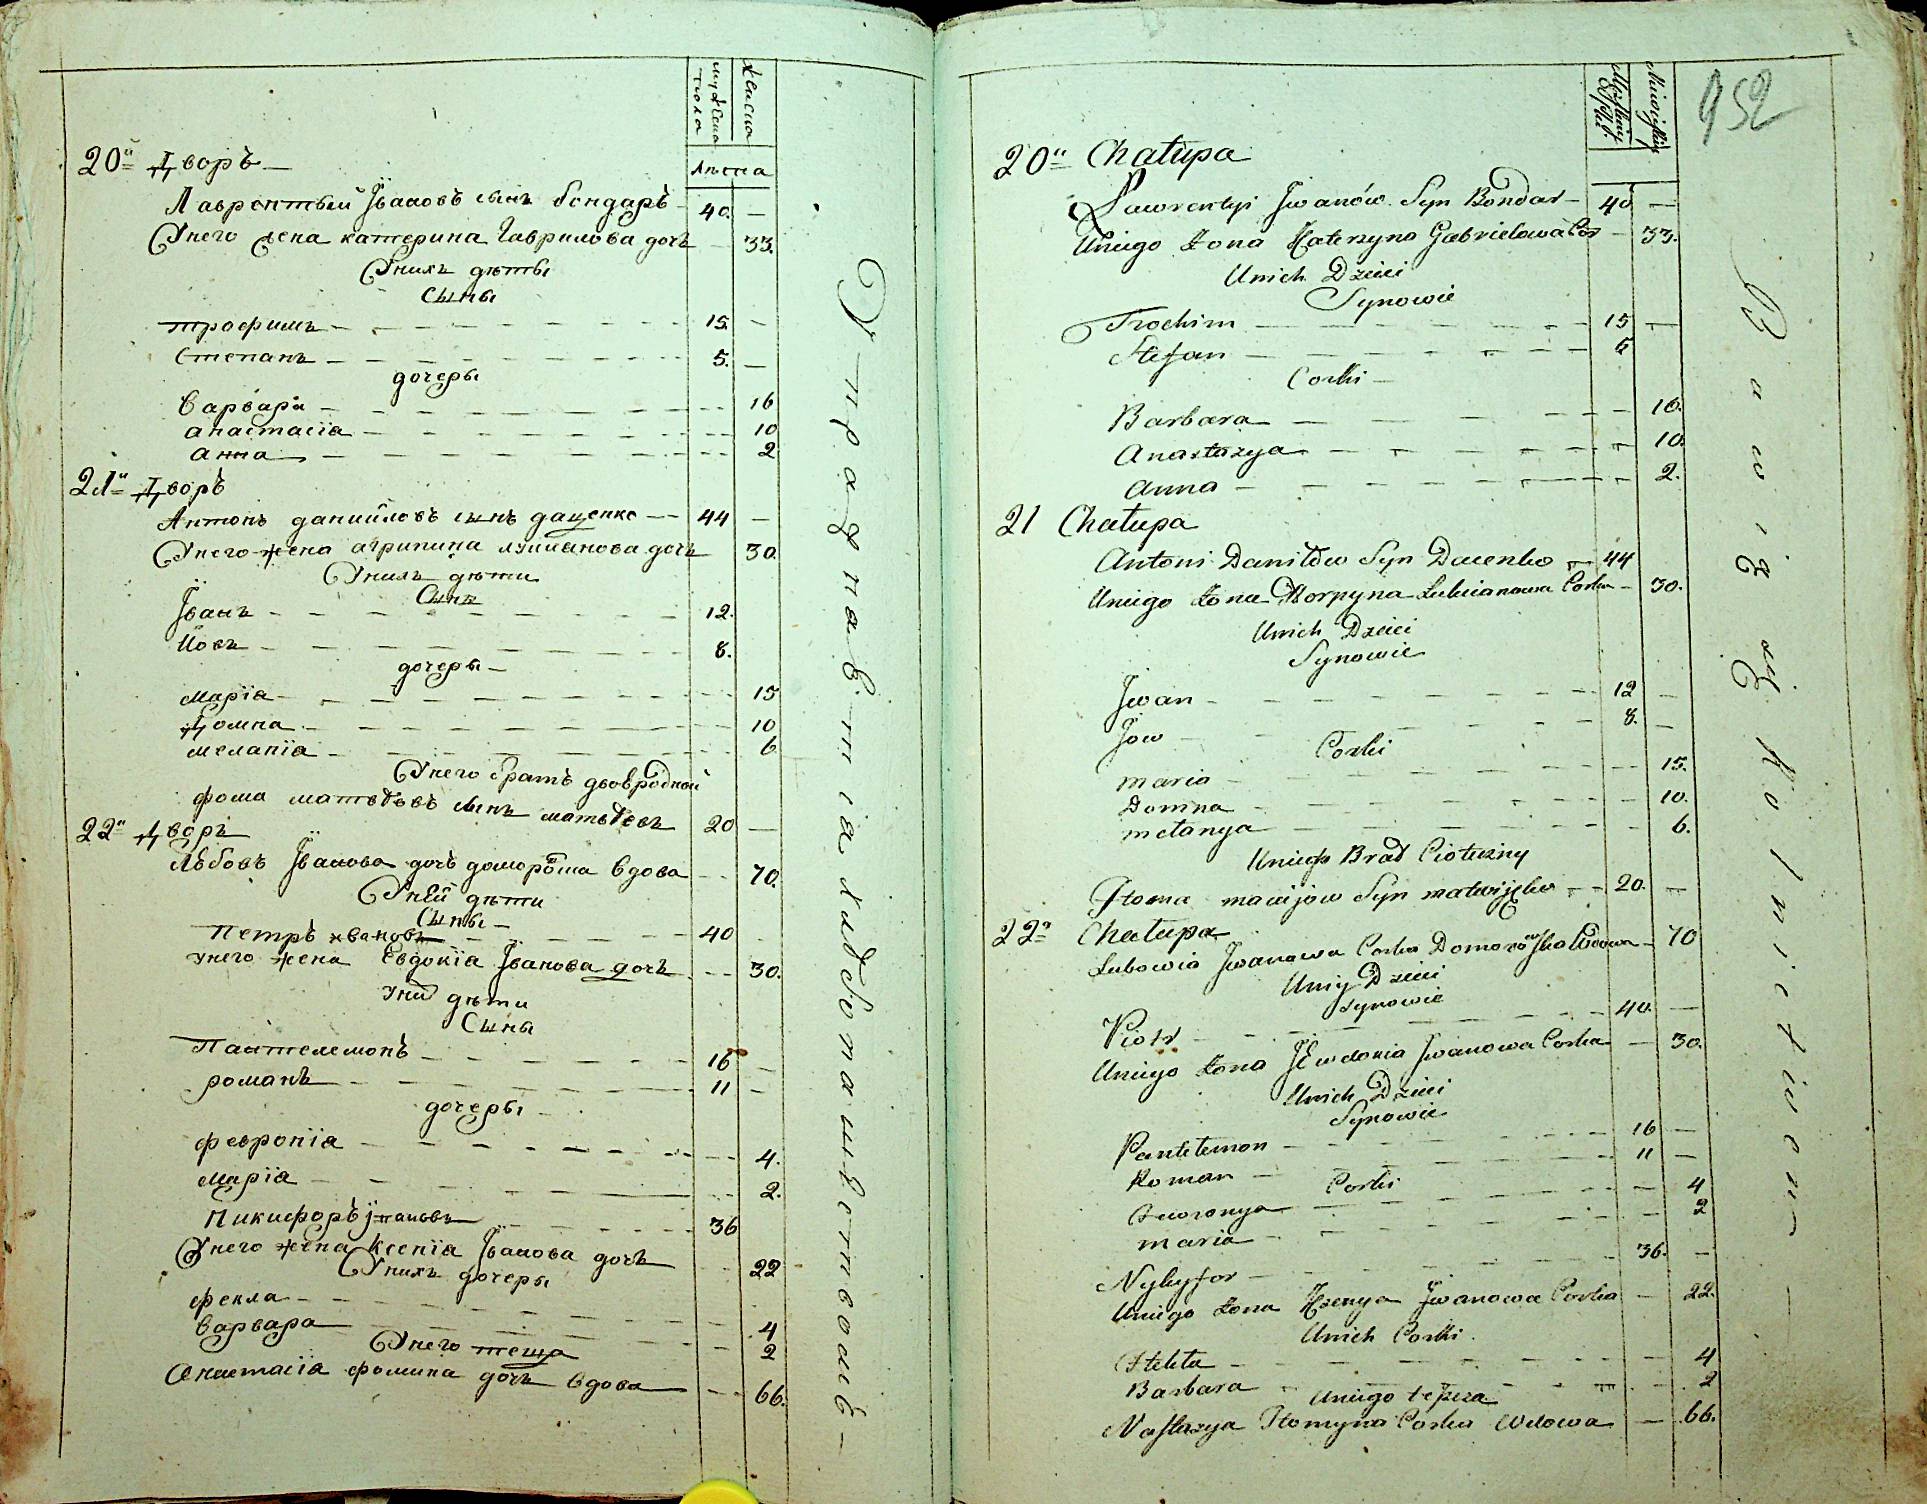 мужеска
пола
женска
Лѣта
20й Дворъ
Лаврентый Івановъ сынъ бондаръ 40. —
Унего жена катерина Гаврилова дочь — 33.
Унихъ дѣты
Сыны
трофимъ 15. —
Степанъ 5. —
дочеры
Варвара 16
анастасіа 10
анна 2
21й Дворъ
Антонъ данииловъ сынъ даценко 44 —
Унего жена агрипина лукианова дочь 30.
Унихъ дѣти
Сынъ
Їванъ 12.
Иовъ 8.
дочеры
Маріа 15
Домна 10
меланіа 6
Унего братъ двовродной
фома матвѣевъ сынъ матвѣевъ 20 —
22й Дворъ
Любовь Іванова дочь вдова 70.
Уней дѣти
Сыны
Петръ ивановъ 40
унего жена Евдокіа Іванова дочь 30.
Уних дѣти
Сыны
Пантелемонъ 16 —
романъ 11 —
дочеры
февроніа 4.
маріа 2.
Никифоръ івановъ 36
Унего жена Ксеніа Іванова дочь 22
Унихъ дочеры
фекла 4
варвара 2
Унего теща
Анастасіа фомина дочь вдова 66.
952
20й Chałupa
Ławrentyi Jwanów Syn Bondar 40 —
Uniego Żona Katerzyna Gabrielowa Cor — 33.
Unich Dzieci
Synowie
Trochim 15 —
Stefan 5
Corki
Barbara 16.
Anastazya 10.
Anna 2.
21 Chałupa
Antoni Daniłow Syn Dacenko 44
Uniego Żona Horpyna Łukianowa Corka 30.
Unich Dzieci
Synowie
Jwan 12 —
Jow 8. —
Corki
maria 15.
Domna 10.
mełanya 6.
Uniego Brat Ciotezny
Homa maciejow Syn matwijęko 20. —
22а Chałupa
Lubowia Jwanowa Corka Wdowa 70
Uniy Dzieci
Synowie
Piotr 40. —
Uniego Żona Jewdokia Jwanowa Corka — 30.
Unich Dzieci
Synowie
Pantelemon 16 —
Roman 11 —
Corki
Fewronya 4
maria 2
Nykyfor 36. —
Uniego Żona Xsenya Jwanowa Corka — 22.
Unich Corki
Hekla 4
Barbara 2
Uniego tescza
Nastazya Homyna Corka Wdowa — 66.